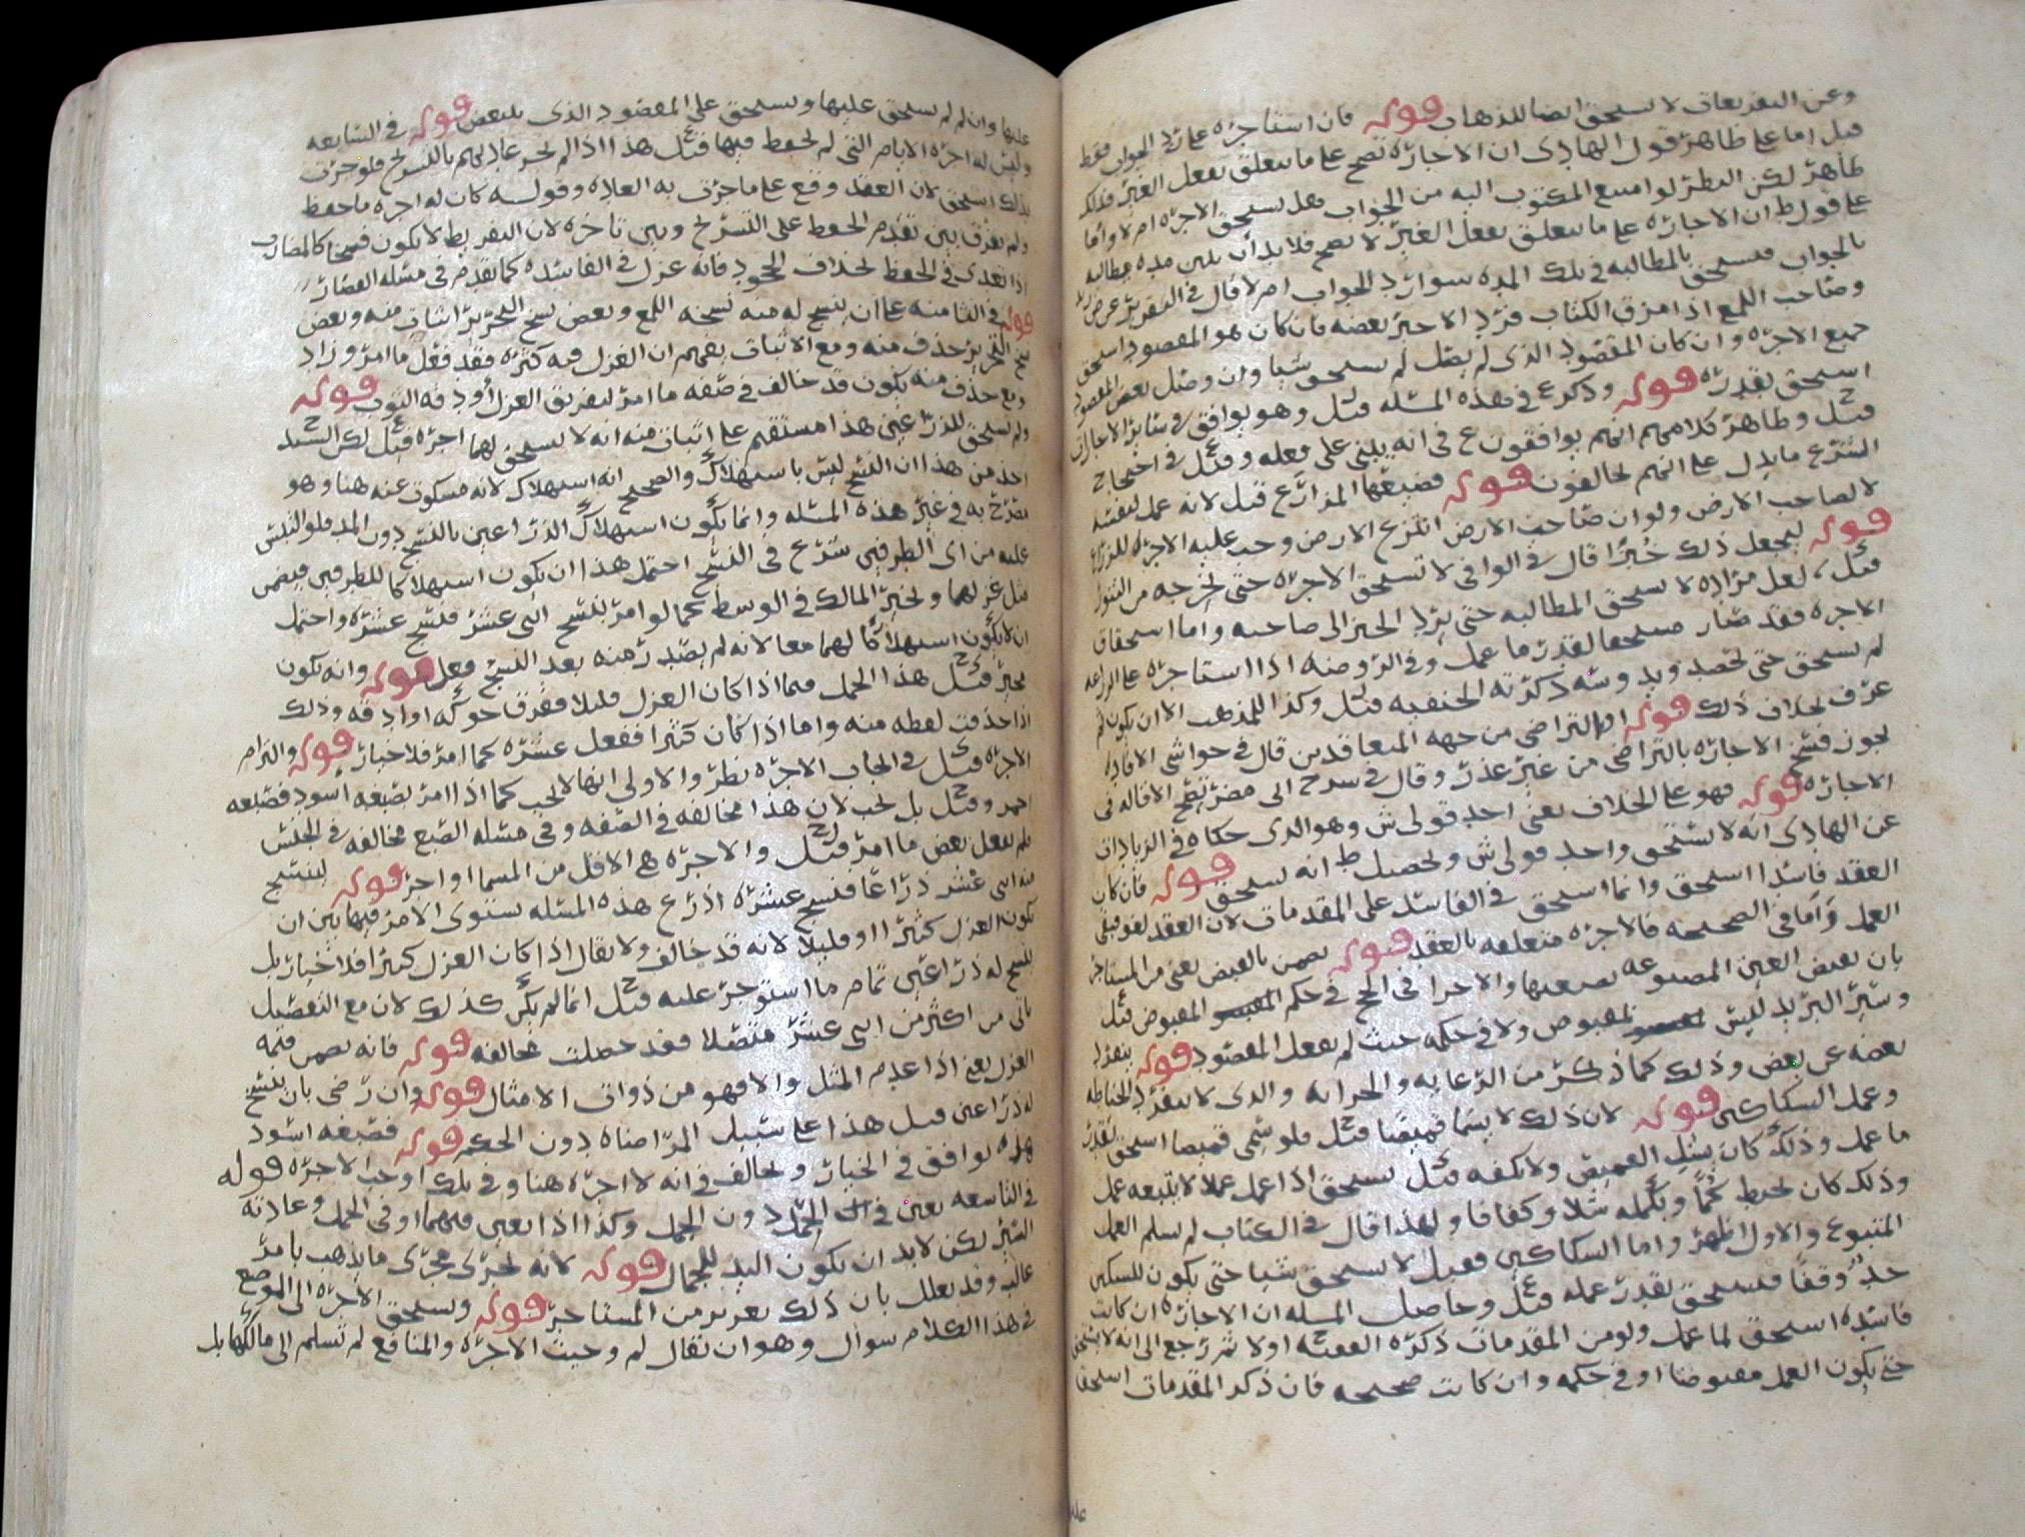 وعن التفريعات لا يستحق ايضا للذهاب قوله فان استاجره على رد الجواب فقط
قيل اما على ظاهر قول الهادي ان الاجارة تصح على ما يتعلق بفعل الغير فذلك
ظاهر لكن النظر لو امتنع المكتوب اليه من الجواب هل يستحق الاجره ام لا واما
على قول ط ان الاجاره على ما يتعلق بفعل الغير لا تصح فلا بد ان يبين مده مطالبه
بالجواب فيستحق بالمطالبه في تلك المده سوا رد الجواب ام لا قال في التقرير
وصاحب اللمع اذا مزق الكتاب فرد الاجير بعضه فان كان هو المقصود استحق
جميع الاجره وان كان المقصود الذي لم يصل لم يستحق شيا وان وصل بعض المقصود
استحق بقدره قوله وذكر ع في هذه المسله قيل وهو يوافق في سائر الاجارات
قيل وظاهر كلامهم انهم يوافقون ع في انه يبني على فعله وقيل في احتجاج
الشرع ما يدل على انهم يخالفون قوله فضيعها المزارع قيل لانه عمل لنفسه
لا لصاحب الارض ولو ان صاحب الارض انتزع الارض وجب عليه الاجره للزراع
قوله ليجعل ذلك خبزا قال في الوافي لا تستحق الاجره حتى يخرجه من التنور
قيل لعل مراده لا يستحق المطالبه حتى يرد الخبز الى صاحبه واما استحقاق
الاجره فقد صار مستحقا لقدر ما عمل وفي الروضه اذا استاجره على الزراعه
لم يستحق حتى يحصد ويدوسه ذكرته الحنفيه قيل وكذا للمذهب الا ان يكون ثم
عرف بخلاف ذلك قوله او بالتراضي من جهه المتعاقدين قال في حواشي الافاده
يجوز فسخ الاجاره بالتراضي من غير عذر وقال في شرح ابي مضر تصح الاقاله في
الاجاره قوله فهو على الخلاف يعني احد قولي ش وهو الذي حكاه في الزيادات
عن الهادي انه لا يستحق واحد قولي ش وتحصيل ط انه يستحق قوله فان كان
العقد فاسدا استحق وانما استحق في الفاسد على المقدمات لان العقد لغو فبقي
العمل واما في الصحيحه فالاجره متعلقه بالعقد قوله يضمن بالقبض يعني من المستاجر
بان يقبض العين المصبوعه بصبعها والاحرا في الحج في حكم المقبوض قيل
وسير البريد ليس بمقبوض ولا في حكمه حيث لم يفعل المقصود قوله ينفرد
بعضه عن بعض وذلك كما ذكر من الرعايه والحراثه والذي لا ينفرد الخياطه
وعمل السكاكين قوله لان ذلك لا يسما قميصا قيل فلو سمي قميصا استحق بقدر
ما عمل وذلك كان بدن القميص ولا كفه قيل يستحق اذا عمل عملا لا يتبعه عمل
وذلك كان يخيط كما ويكمله مثلا وكفافا ولهذا قال في الكتاب لم يسلم العمل
المتبوع والاول اظهر واما السكاكين فقيل لا يستحق شيا حتى يكون للسكين
حد وقفا فيستحق بقدر عمله قيل وحاصل المسله ان الاجاره ان كانت
فاسده استحق لما عمل ولو من المقدمات ذكره الفقيه اولا ثم رجع الى انه لا يستحق
حتى يكون العمل مقبوضا او في حكمه وان كانت صحيحه فان ذكر المقدمات استحق
عليها وان لم لم يستحق عليها ويستحق على المقصود الذي يتبعض قوله في السابعه
وليس له اجره الايام التي لم يحفظ فيها قيل هذا اذا لم تجر عادتهم بالتسريح فلو جرت
بذلك استحق لان العقد وقع على ما جرت به العاده وقوله كان له اجره ما حفظ
ولم يفرق بين تقدم الحفظ على التسريح وبين تاخره لان التفريط لا يكون فسخا كالمضارب
اذا تعدى في الحفظ بخلاف الجحود فانه عزل في الفاسده كما تقدم في مسله القصار
قوله في الثامنه على ان ينسخ له منه نسخه اللمع وبعض نسخ التحرير اثبات منه وبعض
نسخ التحرير حذف منه ومع الاثبات يفهم ان الغزل فيه كثره فقد فعل ما امر وزاد
ومع حذف منه يكون قد خالف في صفه ما امر لتفريق الغزل او دقه الثوب قوله
ولم يستحق للذراعين هذا مستقيم على اثبات منه انه لا يستحق لهما اجره قيل لكن السيد
اخذ من هذا ان النسج ليس باستهلاك والصحيح انه استهلاك لانه مسكوت عنه هنا وهو
مصرح به في غير هذه المسله وانما يكون استهلاك الذراعين بالنسج دون المد فلو التبس
عليه من اي الطرفين شرع في النسج احتمل هذا ان يكون استهلاكا للطرفين فيضمن
مثل غزلهما ويخير المالك في الوسط كما لو امر بنسج اثنى عشر فنسج عشره واحتمل
ان لا يكون استهلاكا لهما معا لانه لم يصدر منه بعد النسج فعل قوله وانه يكون
مخير قيل هذا الحمل فيما اذا كان الغزل قليلا ففرق حوكه او ادقه وذلك
اذا حذفت لفظه منه واما اذا كان كثيرا ففعل عشره كما امر فلا خيار قوله والتزام
الاجره قيل في ايجاب الاجره نظر والاولى انها لا تجب كما اذا امر بصبغه اسود فصبغه
احمر وقيل بل تجب لان هذا مخالفه في الصفه وفي مسله الصبغ مخالفه في الجنس
فلم يفعل بعض ما امر قيل والاجره هي الاقل من المسما او اجر قوله لينسج
منه اثنى عشر ذراعا فنسج عشره اذرع هذه المسله يستوي الامر فيها بين ان
يكون الغزل كثيرا او قليلا لانه قد خالف ولا يقال اذا كان الغزل كثيرا فلا خيار بل
ينسج له ذراعين تمام ما استوجر عليه قيل انما لم يكن كذلك لان مع التفصيل
ياتي من اكثر من اثنى عشر متصلا فقد حصلت مخالفه قوله فانه يضمن قيمه
الغزل يعني اذا عدم المثل والا فهو من ذوات الامثال قوله وان رضي بان ينسج
له ذراعين قيل هذا على سبيل المراضاه دون الحكم قوله فصبغه اسود
يوافق في الخيار ويخالف في انه لا اجره هنا وفي تلك اوجب الاجره قوله
في التاسعه يعني في الحمل دون الجمل وكذا اذا تعين فيهما او في الجمل وعادته
السير لكن لا بد ان يكون اليد للجمال قوله لانه يجري مجرى ما يذهب بامر
غالب وقد يعلل بان ذلك تغرير من المستاجر قوله ويستحق الاجره الى الموضع
في هذا الكلام سوال وهو ان يقال لم وجبت الاجره والمنافع لم تسلم الى مالكها بل